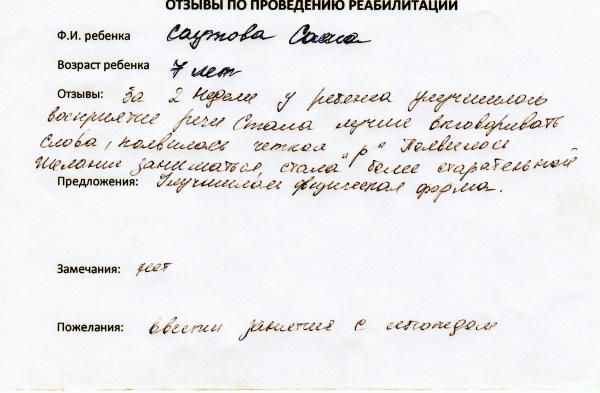 ОТЗЫВЫ ПО ПРОВЕДЕНИЮ РЕАБИЛИТАЦИИ
Ф.И. ребенка Саутова Саша
Возраст ребенка 7 лет
Отзывы: За 2 недели у ребенка улучшилось
восприятие речи Стала лучше выговаривать
слова, появилась четкая "р" Появилось
желание заниматься, стала более старательной
Предложения: Улучшилась физическая форма.
Замечания: нет
Пожелания: ввести занятия с логопедом